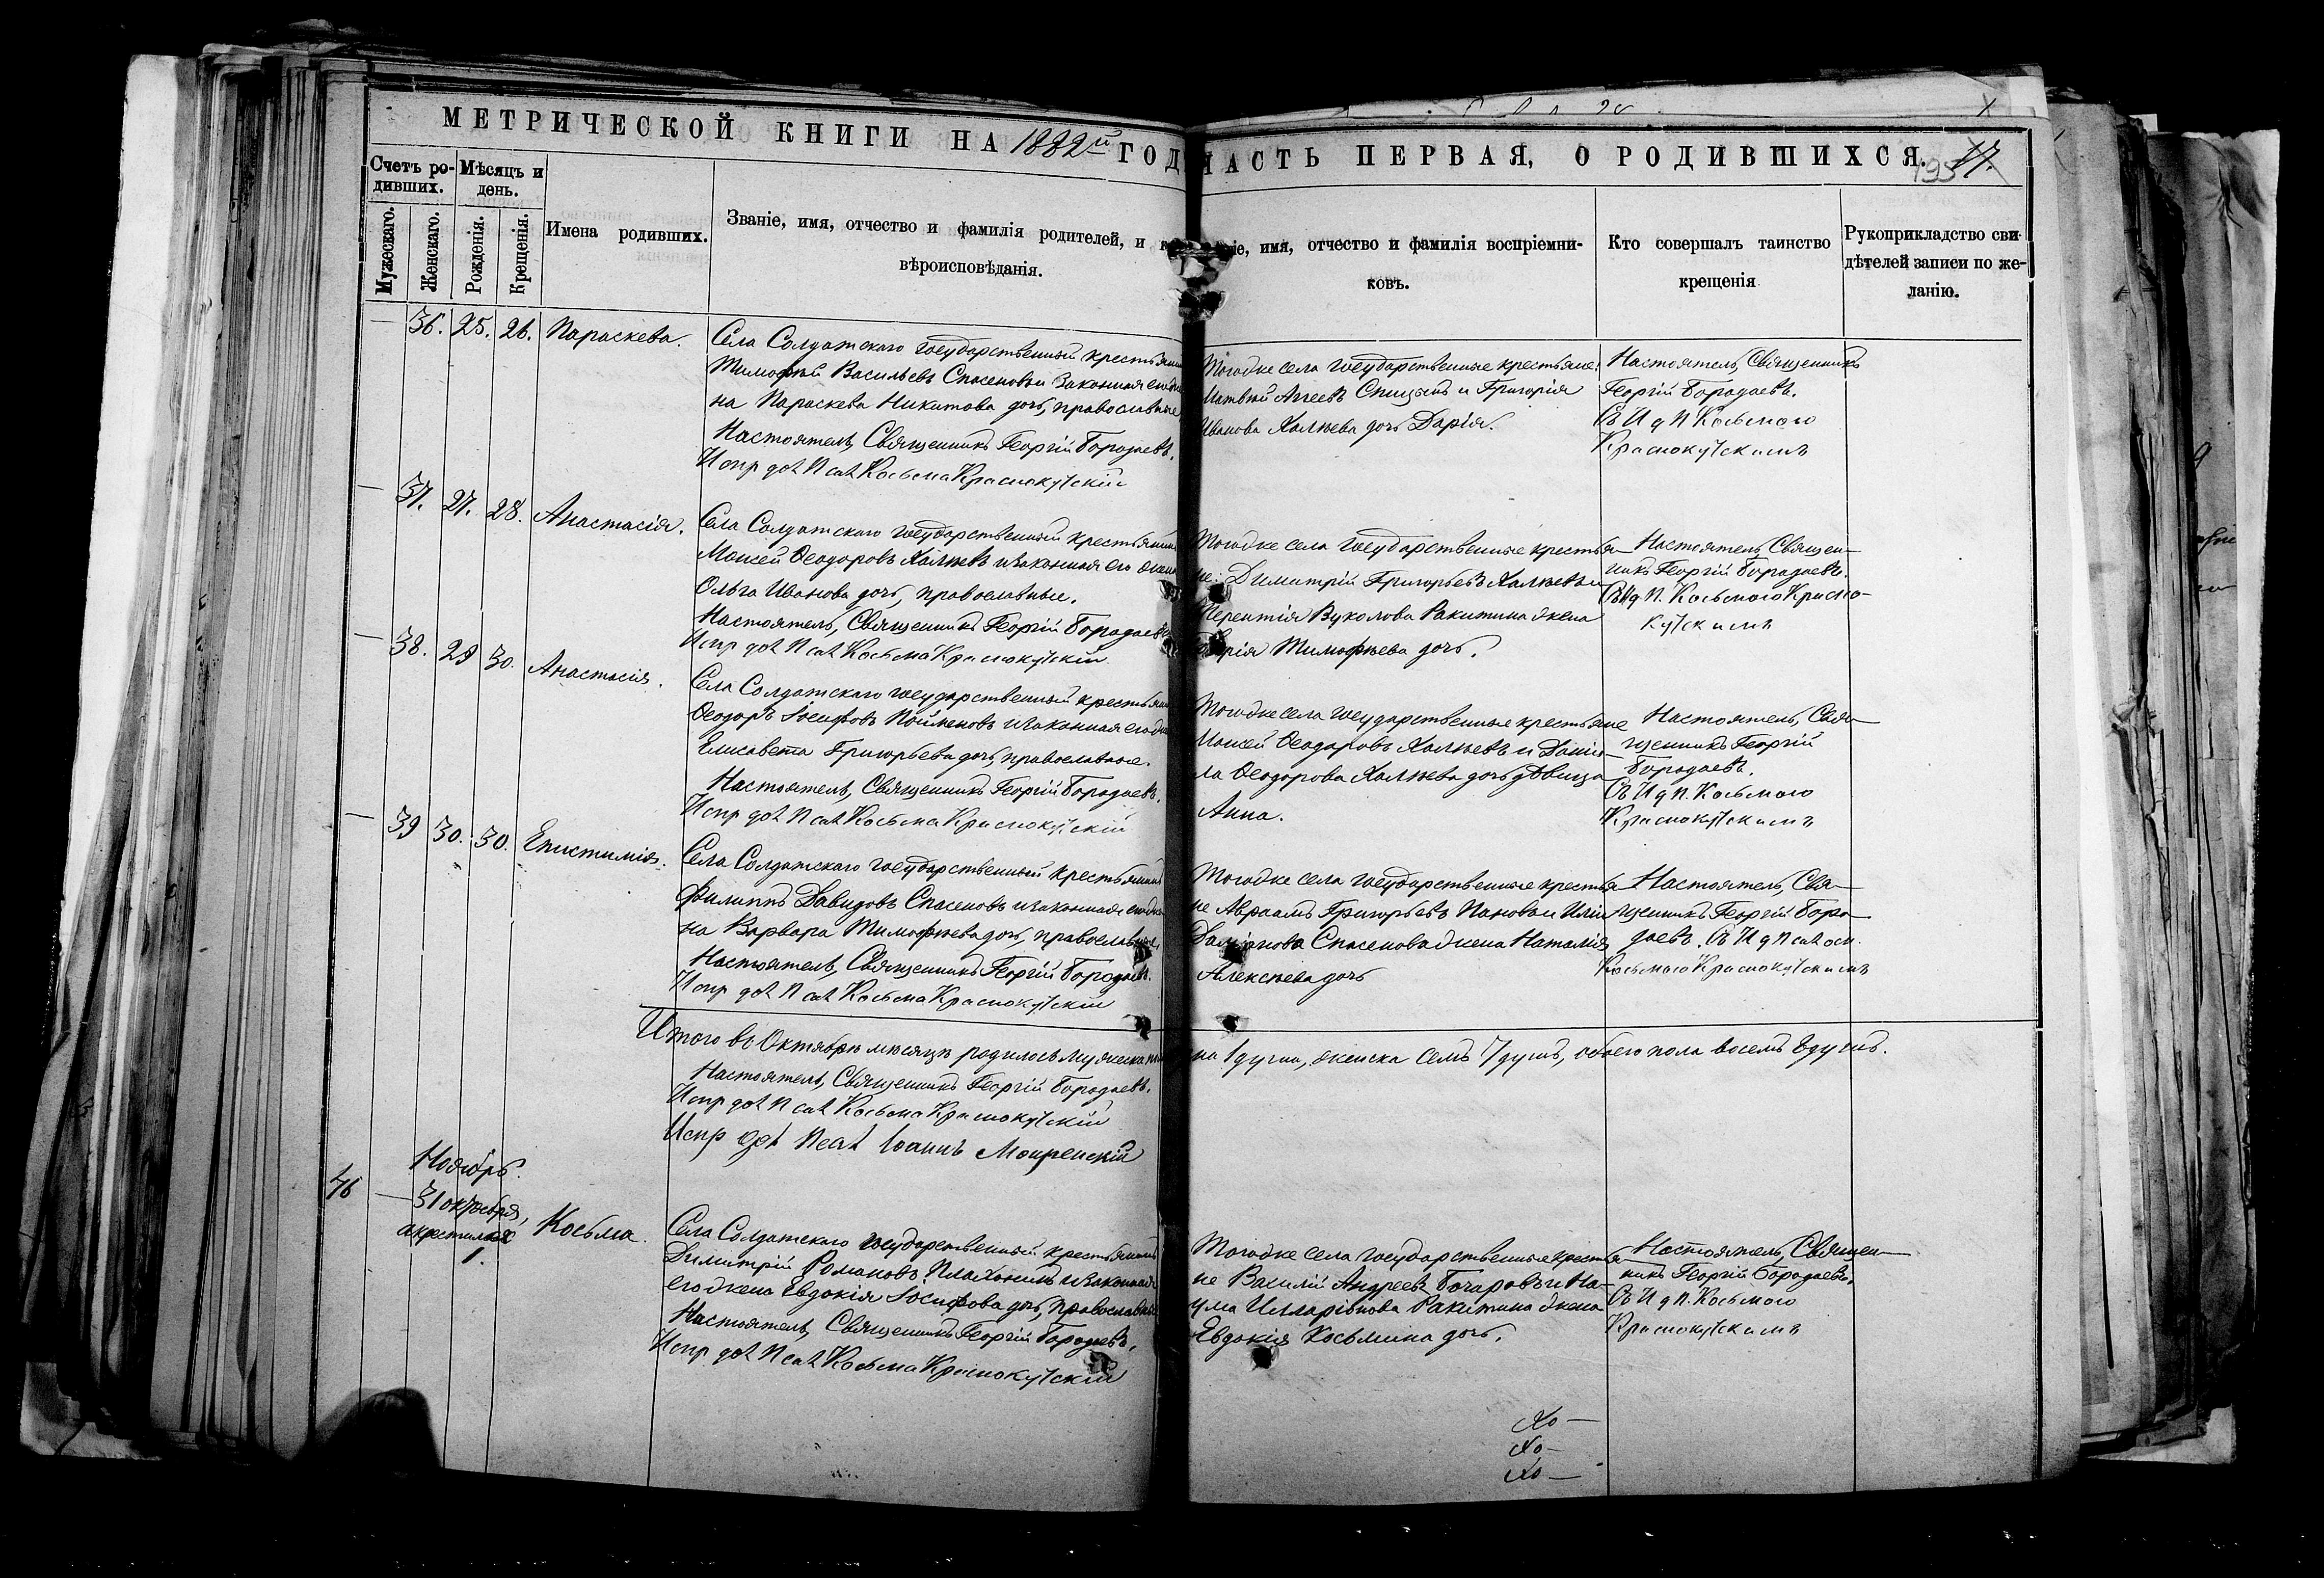 МЕТРИЧЕСКОЙ КНИГИ НА 1882й ГОД
ЧАСТЬ ПЕРВАЯ, О РОДИВШИХСЯ.
195
17.
Счетъ ро-
дивших.
Мѣсяцъ и
день.
Мужескаго.
Женскаго.
Рожденія.
Крещенія.
Имена родивших.
Званіе, имя, отчество и фамилія родителей, и
вѣроисповѣданія.
имя, отчество и фамилія воспріемни-
ковъ.
Кто совершалъ таинство
крещенія
Рукоприкладство сви-
дѣтелей записи по же-
ланію.
— 36. 25. 26. Параскева.
Села Солдатскаго государственный крестьянинъ
Тимофѣй Васильевъ Спасеновъ и законная его же
на Параскева Никитова дочь, православные
Настоятель, Священникъ Георгій Бородаевъ.
Испр дол Псал Косьма Краснокутскій
Тогоже села государственные крестьяне:
Матвѣй Агеевъ Спицынъ и Григорія
Иванова Халѣева дочь Дарія.
Настоятель, Священникъ
Георгій Бородаевъ.
Съ И д П Косьмою
Краснокутскимъ
— 37. 27. 28. Анастасія.
Села Солдатскаго государственный крестьянинъ
Моисей Ѳеодоровъ Халѣевъ и законная его жена
Ольга Иванова дочь, православные.
Настоятель, Священникъ Георгій Бородаевъ
Испр дол Псал Косьма Краснокутскій
Тогоже села государственные крестья-
не: Димитрій Григорьевъ Халѣевъ и
Терентія Вуколова Ракитина жена
Тимофѣева дочь.
Настоятель, Священ-
никъ Георгій Бородаевъ.
Съ И д П. Косьмою Красно-
кутскимъ
— 38. 29 30. Анастасія.
Села Солдатскаго государственный крестьянинъ
Ѳеодоръ Іосифовъ Пойменовъ и законная его же
Елисавета Григорьева дочь, православные.
Настоятель, Священникъ Георгій Бородаевъ.
Испр дол Псал Косьма Краснокутскій
Тогоже села государственные крестьяне
Моисей Ѳеодоровъ Халѣевъ и Дани-
ла Ѳеодорова Халѣева дочь дѣвица
Анна.
Настоятель, Свя-
щенникъ Георгій
Бородаевъ.
Съ И д П. Косьмою
Краснокутскимъ
— 39 30. 30. Епистимія.
Села Солдатскаго государственный крестьянинъ
Филиппъ Давидовъ Спасеновъ и законная его же
на Варвара Тимофѣева дочь, православные,
Настоятель, Священникъ Георгій Бородаевъ.
Испр дол Псал Косьма Краснокутскій
Тогоже села государственные крестья
не Авраамъ Григорьевъ Пановъ и Иліи
Даміанова Спасенова жена Наталія
Алексѣева дочь
Настоятель, Свя-
щенникъ Георгій Боро-
даевъ. Съ И д Псал
Косьмою Краснокутскимъ
Итого въ Октябрѣ мѣсяцѣ родилось мужеска по
ла 1 душа, женска семь 7 душъ, обоего пола восемь 8 душъ.
Настоятель, Священникъ Георгій Бородаевъ.
Испр дол Псал Косьма Краснокутскій
Испр дол Псал Іоаннъ Мокренскій
Ноябрь.
46 — 31 октября,
а крестился
1.
Косьма.
Села Солдатскаго государственный крестьянинъ
Димитрій Романовъ Плахотинъ и законная
его жена Евдокія Іосифова дочь, православные
Настоятель, Священникъ Георгій Бородаевъ,
Испр дол Псал Косьма Краснокутскій
Тогоже села государственные крестья
не Василій Андреевъ Бочаровъ и На-
ума Илларіонова Ракитина жена
Евдокія Косьмина дочь.
Настоятель, Священ-
никъ Георгій Бородаевъ,
Съ И д П. Косьмою
Краснокутскимъ
Хо —
Хо —
Хо —